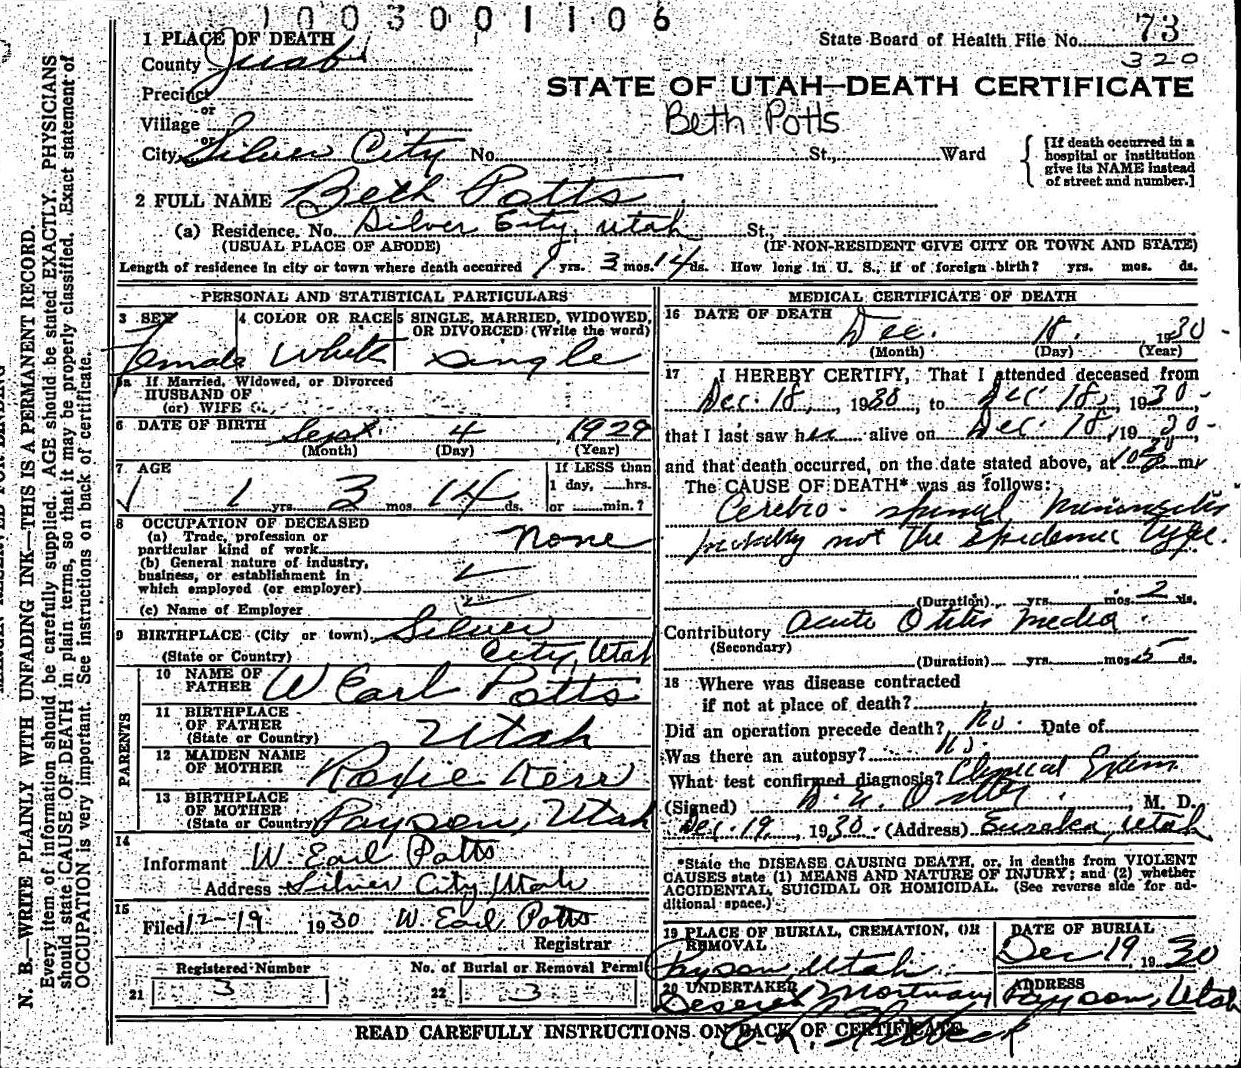 1003001106
1 PLACE OF DEATH
State Board of Health File No. 73
County Juab
320
STATE OF UTAH—DEATH CERTIFICATE
Precinct
or
Beth Potts
Village
or
City Silver City No. St., Ward
[If death occurred in a
hospital or institution
give its NAME instead
of street and number.]
2 FULL NAME Beth Potts
(a) Residence. No. Silver City, Utah St.,
(USUAL PLACE OF ABODE) (IF NON-RESIDENT GIVE CITY OR TOWN AND STATE)
Length of residence in city or town where death occurred 1 yrs. 3 mos. 14 ds. How long in U. S., if of foreign birth? yrs. mos. ds.
PERSONAL AND STATISTICAL PARTICULARS
3 SEX 4 COLOR OR RACE 5 SINGLE, MARRIED, WIDOWED,
OR DIVORCED (Write the word)
Female White Single
5a If Married, Widowed, or Divorced
HUSBAND OF
(or) WIFE
6 DATE OF BIRTH Sept. 4, 1929
(Month) (Day) (Year)
7 AGE If LESS than
1 day, hrs.
1 yrs. 3 mos. 14 ds. or min.?
8 OCCUPATION OF DECEASED
(a) Trade, profession or
particular kind of work None
(b) General nature of industry,
business, or establishment in
which employed (or employer)
(c) Name of Employer
9 BIRTHPLACE (City or town) Silver
(State or Country) City, Utah
PARENTS
10 NAME OF
FATHER W Earl Potts
11 BIRTHPLACE
OF FATHER
(State or Country) Utah
12 MAIDEN NAME
OF MOTHER Kerr
13 BIRTHPLACE
OF MOTHER
(State or Country) Payson, Utah
14
Informant W. Earl Potts
Address Silver City, Utah
15
Filed 12-19 1930 W. Earl Potts
Registrar
Registered Number No. of Burial or Removal Permit
21 3 22 3
MEDICAL CERTIFICATE OF DEATH
16 DATE OF DEATH
Dec. 18. 1930
(Month) (Day) (Year)
17 I HEREBY CERTIFY, That I attended deceased from
Dec. 18, 1930, to Dec 18, 1930
that I last saw her alive on Dec. 18, 1930
and that death occurred, on the date stated above, at 10 m
The CAUSE OF DEATH* was as follows:
Cerebro-spinal Meningitis
probably not the Epidemic type.
(Duration) yrs. mos. 2 ds.
Contributory Acute Otitis Media.
(Secondary)
(Duration) yrs. mos. 5 ds.
18 Where was disease contracted
if not at place of death?
Did an operation precede death? No. Date of
Was there an autopsy? No.
What test confirmed diagnosis? Clinical Exam
(Signed) M. D.
Dec. 19, 1930 (Address) Eureka, Utah
*State the DISEASE CAUSING DEATH, or, in deaths from VIOLENT
CAUSES state (1) MEANS AND NATURE OF INJURY; and (2) whether
ACCIDENTAL, SUICIDAL OR HOMICIDAL. (See reverse side for ad-
ditional space.)
19 PLACE OF BURIAL, CREMATION, OR DATE OF BURIAL
REMOVAL
Payson, Utah. Dec 19, 1930
20 UNDERTAKER ADDRESS
Deseret Mortuary Payson, Utah
READ CAREFULLY INSTRUCTIONS ON BACK OF CERTIFICATE
N. B.—WRITE PLAINLY WITH UNFADING INK—THIS IS A PERMANENT RECORD.
Every item of information should be carefully supplied. AGE should be stated EXACTLY. PHYSICIANS
should state CAUSE OF DEATH in plain terms, so that it may be properly classified. Exact statement of
OCCUPATION is very important. See instructions on back of certificate.